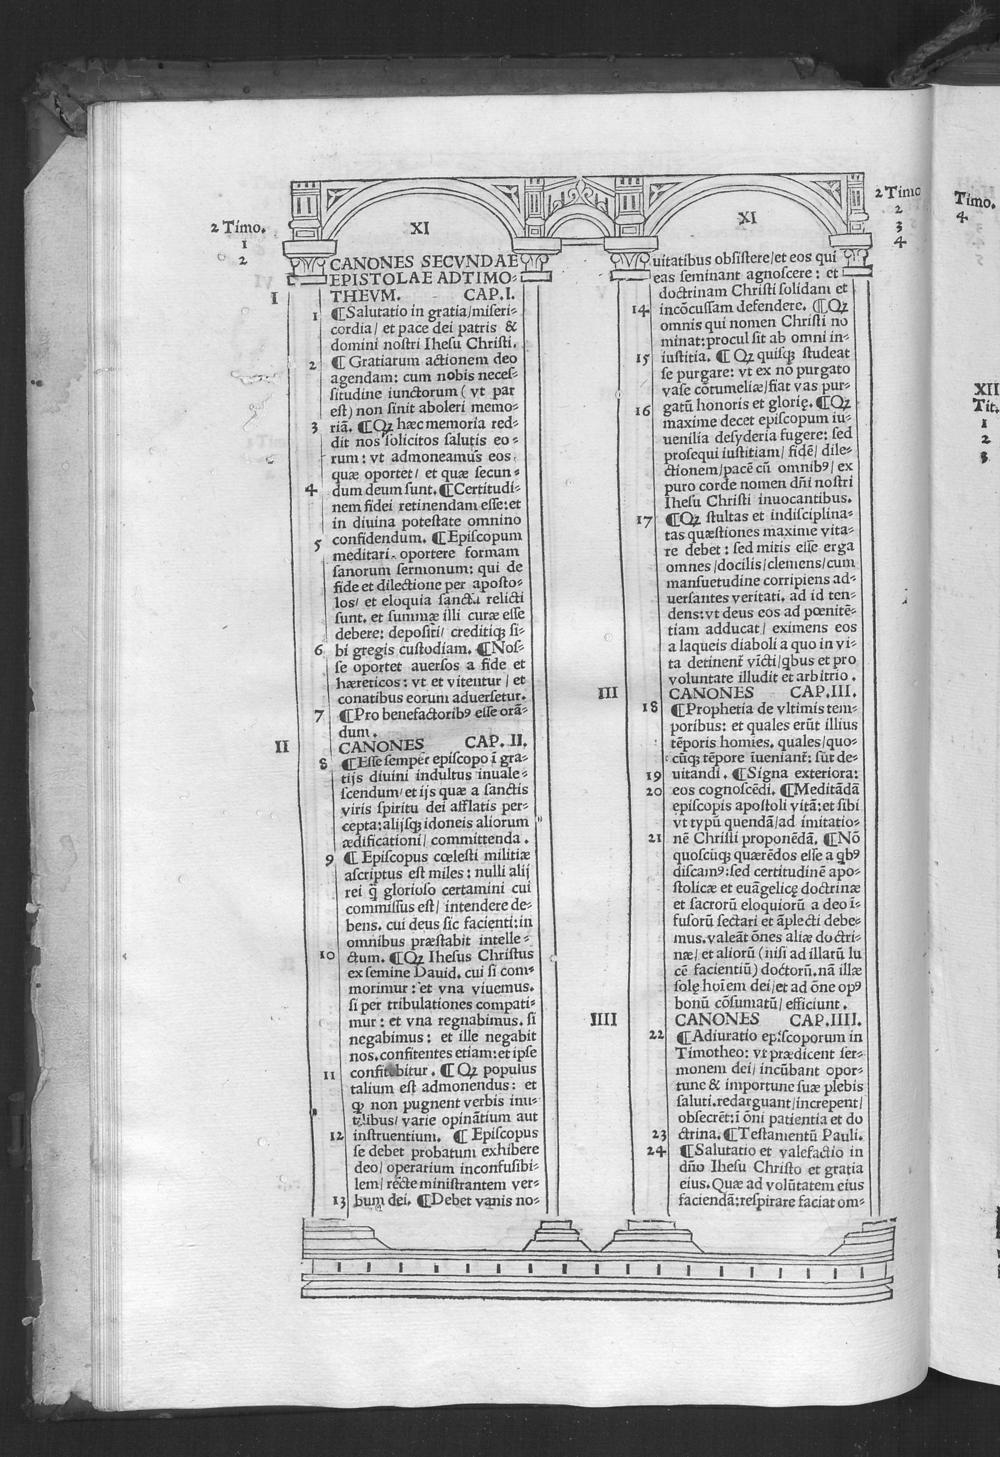 2 Timo.
1
2
XI
CANONES SECVNDAE
EPISTOLAE AD TIMO⸗
I THEVM. CAP.I.
1 ¶Salutatio in gratia/miseri⸗
cordia/ et pace dei patris &
domini nostri Ihesu Christi.
2 ¶ Gratiarum actionem deo
agendam: cum nobis neces⸗
situdine iunctorum ( vt par
est) non sinit aboleri memo⸗
3 riā. ¶Qꝫ hæc memoria red⸗
dit nos solicitos salutis eo⸗
rum: vt admoneamus eos
quæ oportet/ et quæ secun⸗
4 dum deum sunt. ¶Certitudi⸗
nem fidei retinendam esse:et
in diuina potestate omnino
confidendum. ¶Episcopum
5 meditari oportere formam
sanorum sermonum: qui de
fide et dilectione per aposto⸗
los/ et eloquia sancta relicti
sunt. et summæ illi curæ esse
debere: depositi/ creditiqꝫ si⸗
6 bi gregis custodiam. ¶Nos⸗
se oportet auersos a fide et
hæreticos: vt et vitentur/ et
conatibus eorum aduersetur.
7 ¶Pro benefactoribꝰ esse orā⸗
dum.
II CANONES CAP. II.
8 ¶Esse semper episcopo ī gra⸗
tijs diuini indultus inuale⸗
scendum/et ijs quæ a sanctis
viris spiritu dei afflatis per⸗
cepta:alijsqꝫ idoneis aliorum
ædificationi/ committenda.
9 ¶ Episcopus cœlesti militiæ
ascriptus est miles: nulli alij
rei q̄ glorioso certamini cui
commissus est/ intendere de⸗
bens. cui deus sic facienti:in
omnibus præstabit intelle⸗
10 ctum. ¶Qꝫ Ihesus Christus
ex semine Dauid. cui si com⸗
morimur: et vna viuemus.
si per tribulationes compati⸗
mur: et vna regnabimus. si
negabimus: et ille negabit
nos.confitentes etiam:et ipse
11 confitebitur. ¶ Qꝫ populus
talium est admonendus: et
qꝫ non pugnent verbis inu⸗
tilibus/ varie opinātium aut
12 instruentium. ¶ Episcopus
se debet probatum exhibere
deo/ operarium inconfusibi⸗
lem/ recte ministrantem ver⸗
13 bum dei. ¶Debet vanis no⸗
2 Timo
2
3
4
XI
uitatibus obsistere/et eos qui
eas seminant agnoscere: et
doctrinam Christi solidam et
14 incōcussam defendere. ¶Qꝫ
omnis qui nomen Christi no
minat:procul sit ab omni in⸗
15 iustitia. ¶ Qꝫ quisqꝫ studeat
se purgare: vt ex nō purgato
vase cōtumeliæ/fiat vas pur⸗
16 gatū honoris et glorię. ¶Qꝫ
maxime decet episcopum iu⸗
uenilia desyderia fugere: sed
prosequi iustitiam/ fidē/ dile⸗
ctionem/pacē cū omnibꝰ/ ex
puro corde nomen dñi nostri
Ihesu Christi inuocantibus.
17 ¶Qꝫ stultas et indisciplina⸗
tas quæstiones maxime vita⸗
re debet: sed mitis esse erga
omnes/docilis/clemens/cum
mansuetudine corripiens ad⸗
uersantes veritati. ad id ten⸗
dens:vt deus eos ad pœnitē⸗
tiam adducat/ eximens eos
a laqueis diaboli a quo in vi⸗
ta detinent̄ victi/qbus et pro
voluntate illudit et arbitrio.
III CANONES CAP.III.
18 ¶Prophetia de vltimis tem⸗
poribus: et quales erūt illius
tēporis homies. quales/quo⸗
cūqꝫ tēpore iueniant̄: sūt de⸗
19 uitandi. ¶Signa exteriora:
20 eos cognoscēdi. ¶Meditādā
episcopis apostoli vitā:et sibi
vt typū quendā/ad imitatio⸗
21 nē Christi proponēdā. ¶Nō
quoscūqꝫ quærēdos esse a qbꝰ
discamꝰ:sed certitudinē apo⸗
stolicæ et euāgelicę doctrinæ
et sacrorū eloquiorū a deo ī⸗
fusorū sectari et āplecti debe⸗
mus.valeāt ōnes aliæ doctri⸗
næ/ et aliorū (nisi ad illarū lu
cē facientiū) doctorū.nā illæ
solę hoīem dei/et ad ōne opꝰ
bonū cōsumatū/ efficiunt.
IIII CANONES CAP.IIII.
22 ¶Adiuratio episcoporum in
Timotheo: vt prædicent ser⸗
monem dei/ incūbant opor⸗
tune & importune suæ plebis
saluti.redarguant/increpent/
obsecrēt:ī ōni patientia et do
23 ctrina. ¶Testamentū Pauli.
24 ¶Salutatio et valefactio in
dño Ihesu Christo et gratia
eius. Quæ ad volūtatem eius
faciendā:respirare faciat om⸗
Timo.
4
XII
Tit.
1
2
3